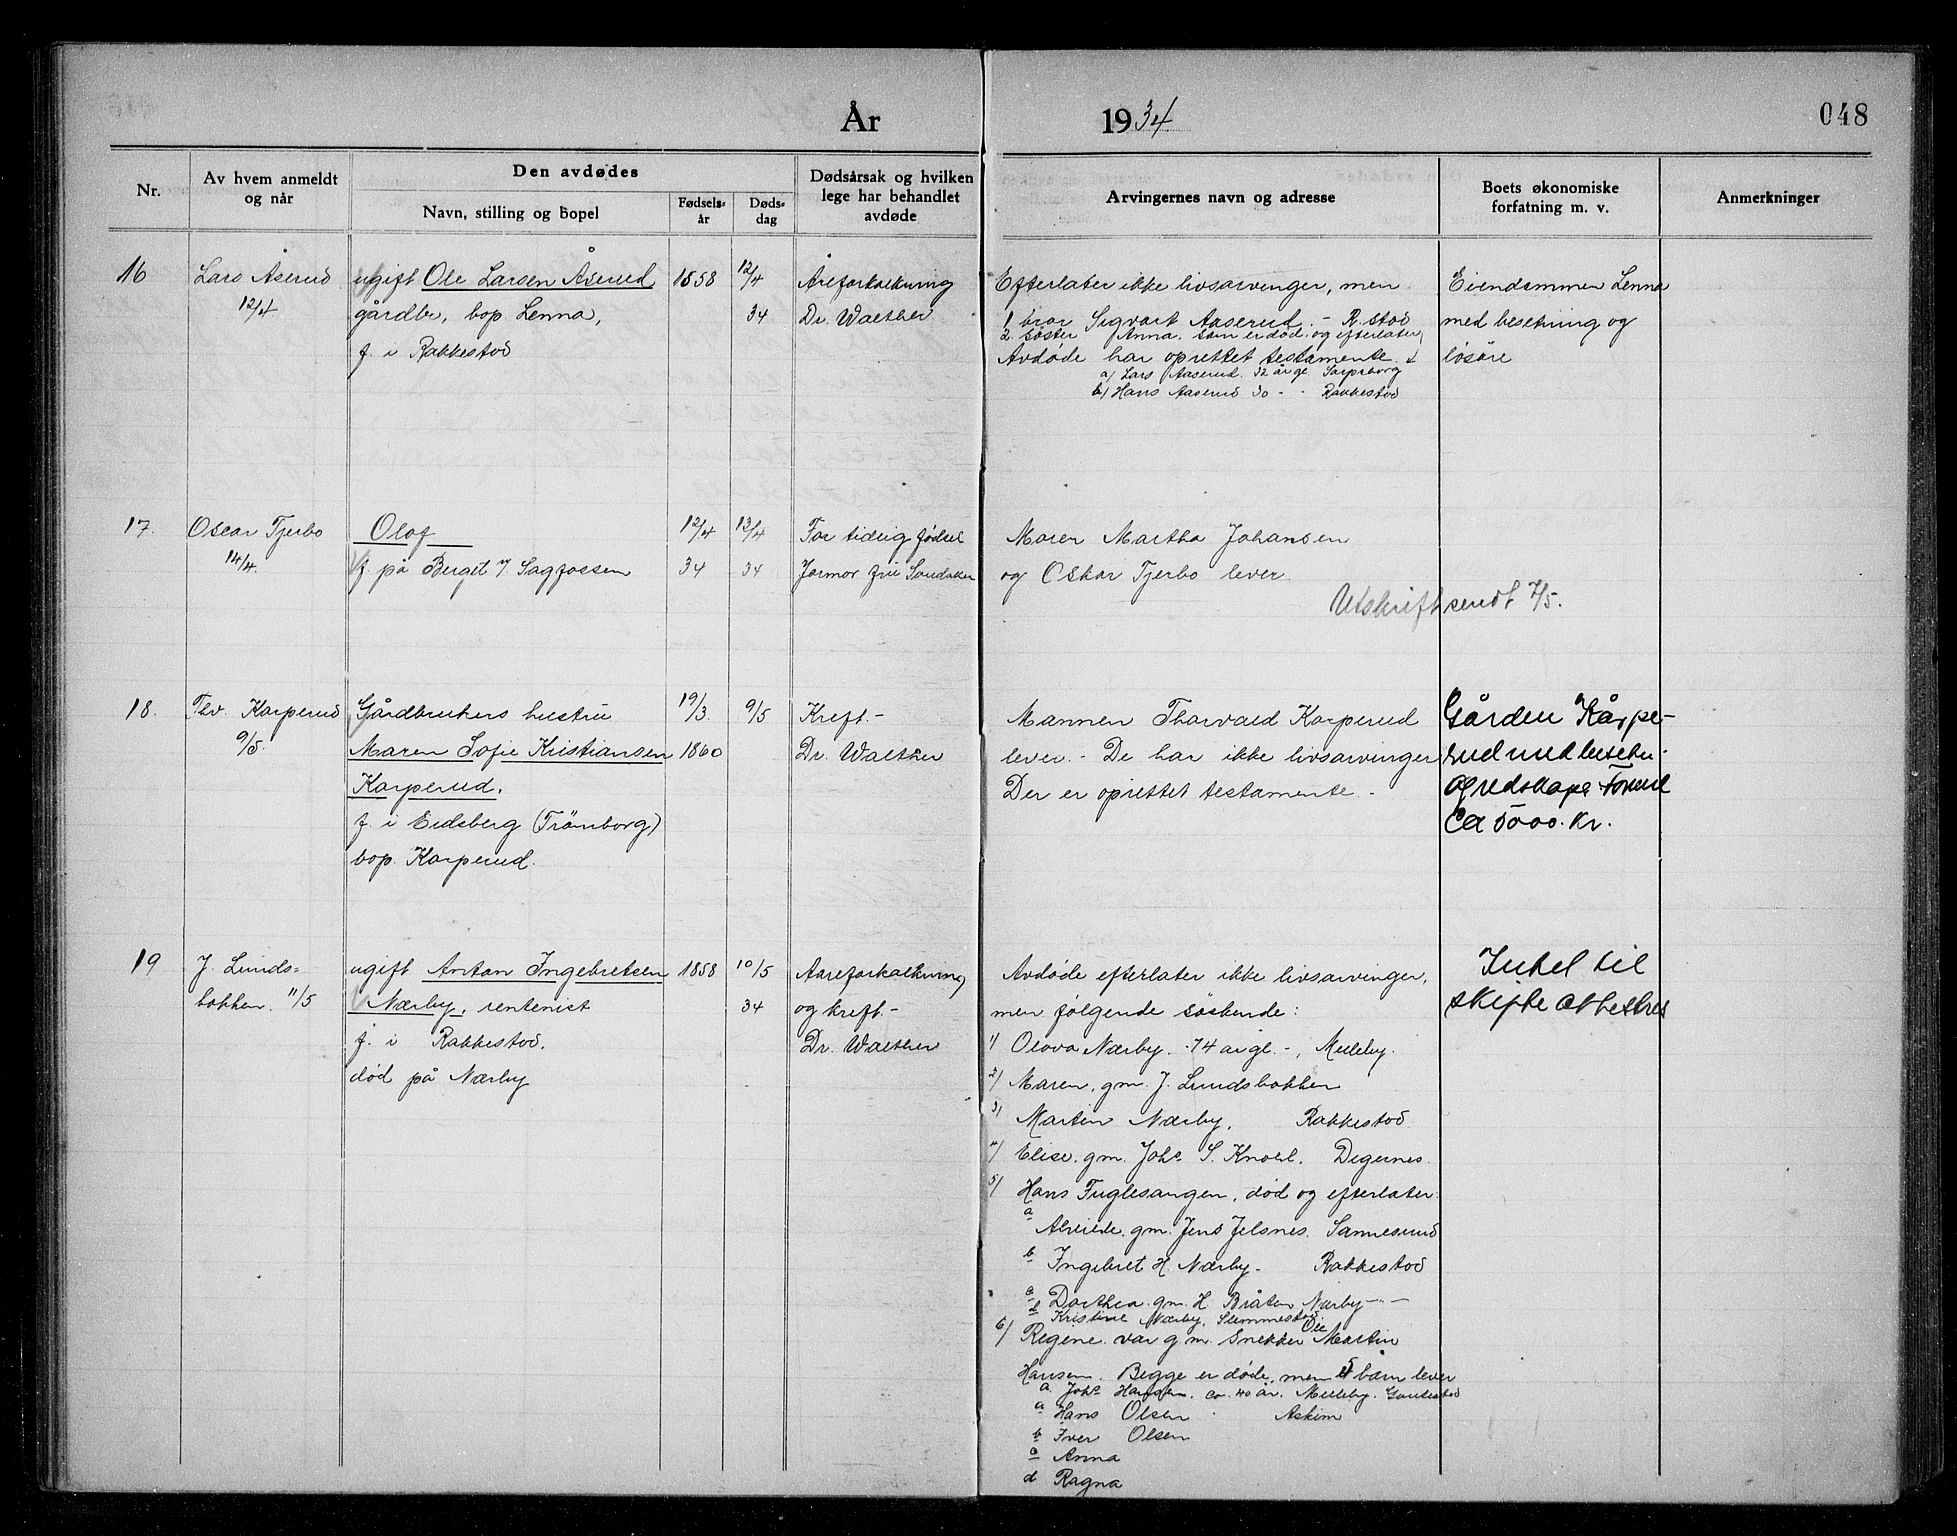 År 1934
048
Nr.
Av hvem anmeldt
og når
Den avdødes
Navn, stilling og bopel
Fødsels-
år
Døds-
dag
Dødsårsak og hvilken
lege har behandlet
avdøde
Arvingernes navn og adresse
Boets økonomiske
forfatning m. v.
Anmerkninger
16
Lars Åserud
12/4
ugift Ole Larsen Åserud
gårdbr, bop. Lenna,
f. i Rakkestad
1858
12/4
34
Åreforkalkning
Dr. Walther
Efterlater ikke livsarvinger, men
1 bror Sigvart Aaserud. - R.stad
2. søster Anna. som er død. og efterlater
Avdøde har oprettet testamente.
a) Lars Aaserud. 32 år gl. Sarpsborg
b) Hans Aaserud 30 - - Rakkestad
Eiendommen Lenna
med besetning og
løsøre
17.
Oscar Tjerbo
14/4.
Olaf
f. på Berget /. Sagfossen
12/4
34
13/4
34
For tidlig fødsel
Jormor fru Sandaker
Moren Martha Johansen
og Oskar Tjerbo lever.
Utskrift sendt 7/5.
18.
Thv. Karperud
9/5.
Gårdbrukers hustru
Maren Sofie Kristiansen
Karperud.
f. i Eidsberg (Trömborg)
bop. Karperud.
19/3.
1860
9/5
Kreft.-
Dr. Walther
Mannen Thorvald Karperud
lever. - De har ikke livsarvinger
Der er oprettet testamente. -
Gården Kårpe-
rud med besetn.
og redskape
Ca 5000. Kr.
19
J. Lunds=
bakken. 11/5
ugift Anton Ingebretsen
Nærby, rentenist
f. i Rakkestad.
død på Nærby
1858
10/5
34
Aareforkalkning
og kreft.-
Dr. Walther
Avdøde efterlater ikke livsarvinger,
men følgende søskende:
1) Olava Nærby. -74 år gl. -, Mulleby.
2) Maren, gm. J. Lundsbakken
3) Martin Nærby, Rakkestad
4) Elise. gm. Johs S. Knoll. Degernes.
5) Hans Fuglesangen, død og efterlater.
a Alvilde. gm. Jens Jelsnes. Sannesund
b Ingebret H. Nærby. Rakkestad
c Dorthea. gm. H. Bråten Nærby - " -
d Kristine Nærby, Slemmestad
6) Regine. var g m. snekker Ole Martin
Hansen. Begge er døde, men 5 barn lever
a. Johs Hansen. ca. 40 år. Mulleby.
a Hans Olsen Askim
b Iver Olsen
c Anna
d Ragna
Intet til
skifte